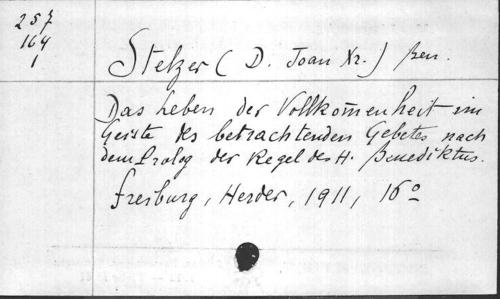 257
164
1
Stelzer (D. Joan Xr.) Ben.
Das Leben der Vollkom̄enheit im
Geiste des betrachtenden Gebetes nach
dem Prolog der Regel des H. Benediktus.
Freiburg, Herder, 1911, 16º